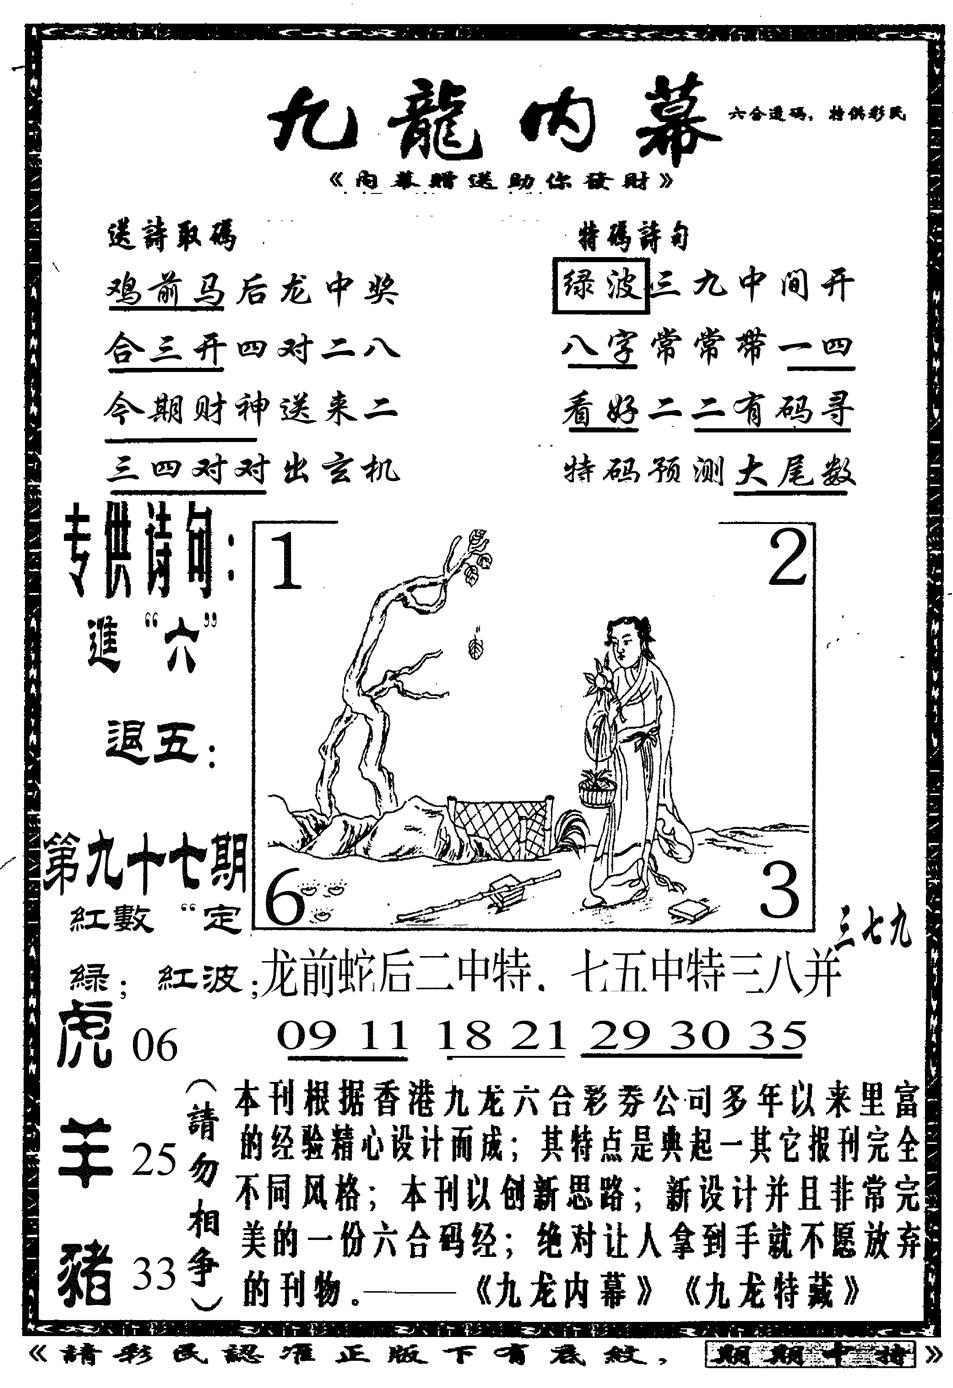 九龍内幕
六合透码，特供彩民
《内幕贈送助你發財》
送詩取碼
鸡前马后龙中奖
合三开四对二八
今期财神送来二
三四对对出玄机
特碼詩句
绿波三九中间开
八字常常带一四
看好二二有码寻
特码预测大尾数
专供诗句：
進“六”
退五：
第九十七期
紅數“定
綠；紅波；
虎 06
羊 25
豬 33
1
2
6
3
三七九
龙前蛇后二中特．七五中特三八并
09 11 18 21 29 30 35
（請勿相争）
本刊根据香港九龙六合彩券公司多年以来里富
的经验精心设计而成；其特点是典起一其它报刊完全
不同风格；本刊以创新思路；新设计并且非常完
美的一份六合码经；绝对让人拿到手就不愿放弃
的刊物。——《九龙内幕》《九龙特藏》
《請彩民認准正版下有底紋，期期中特》